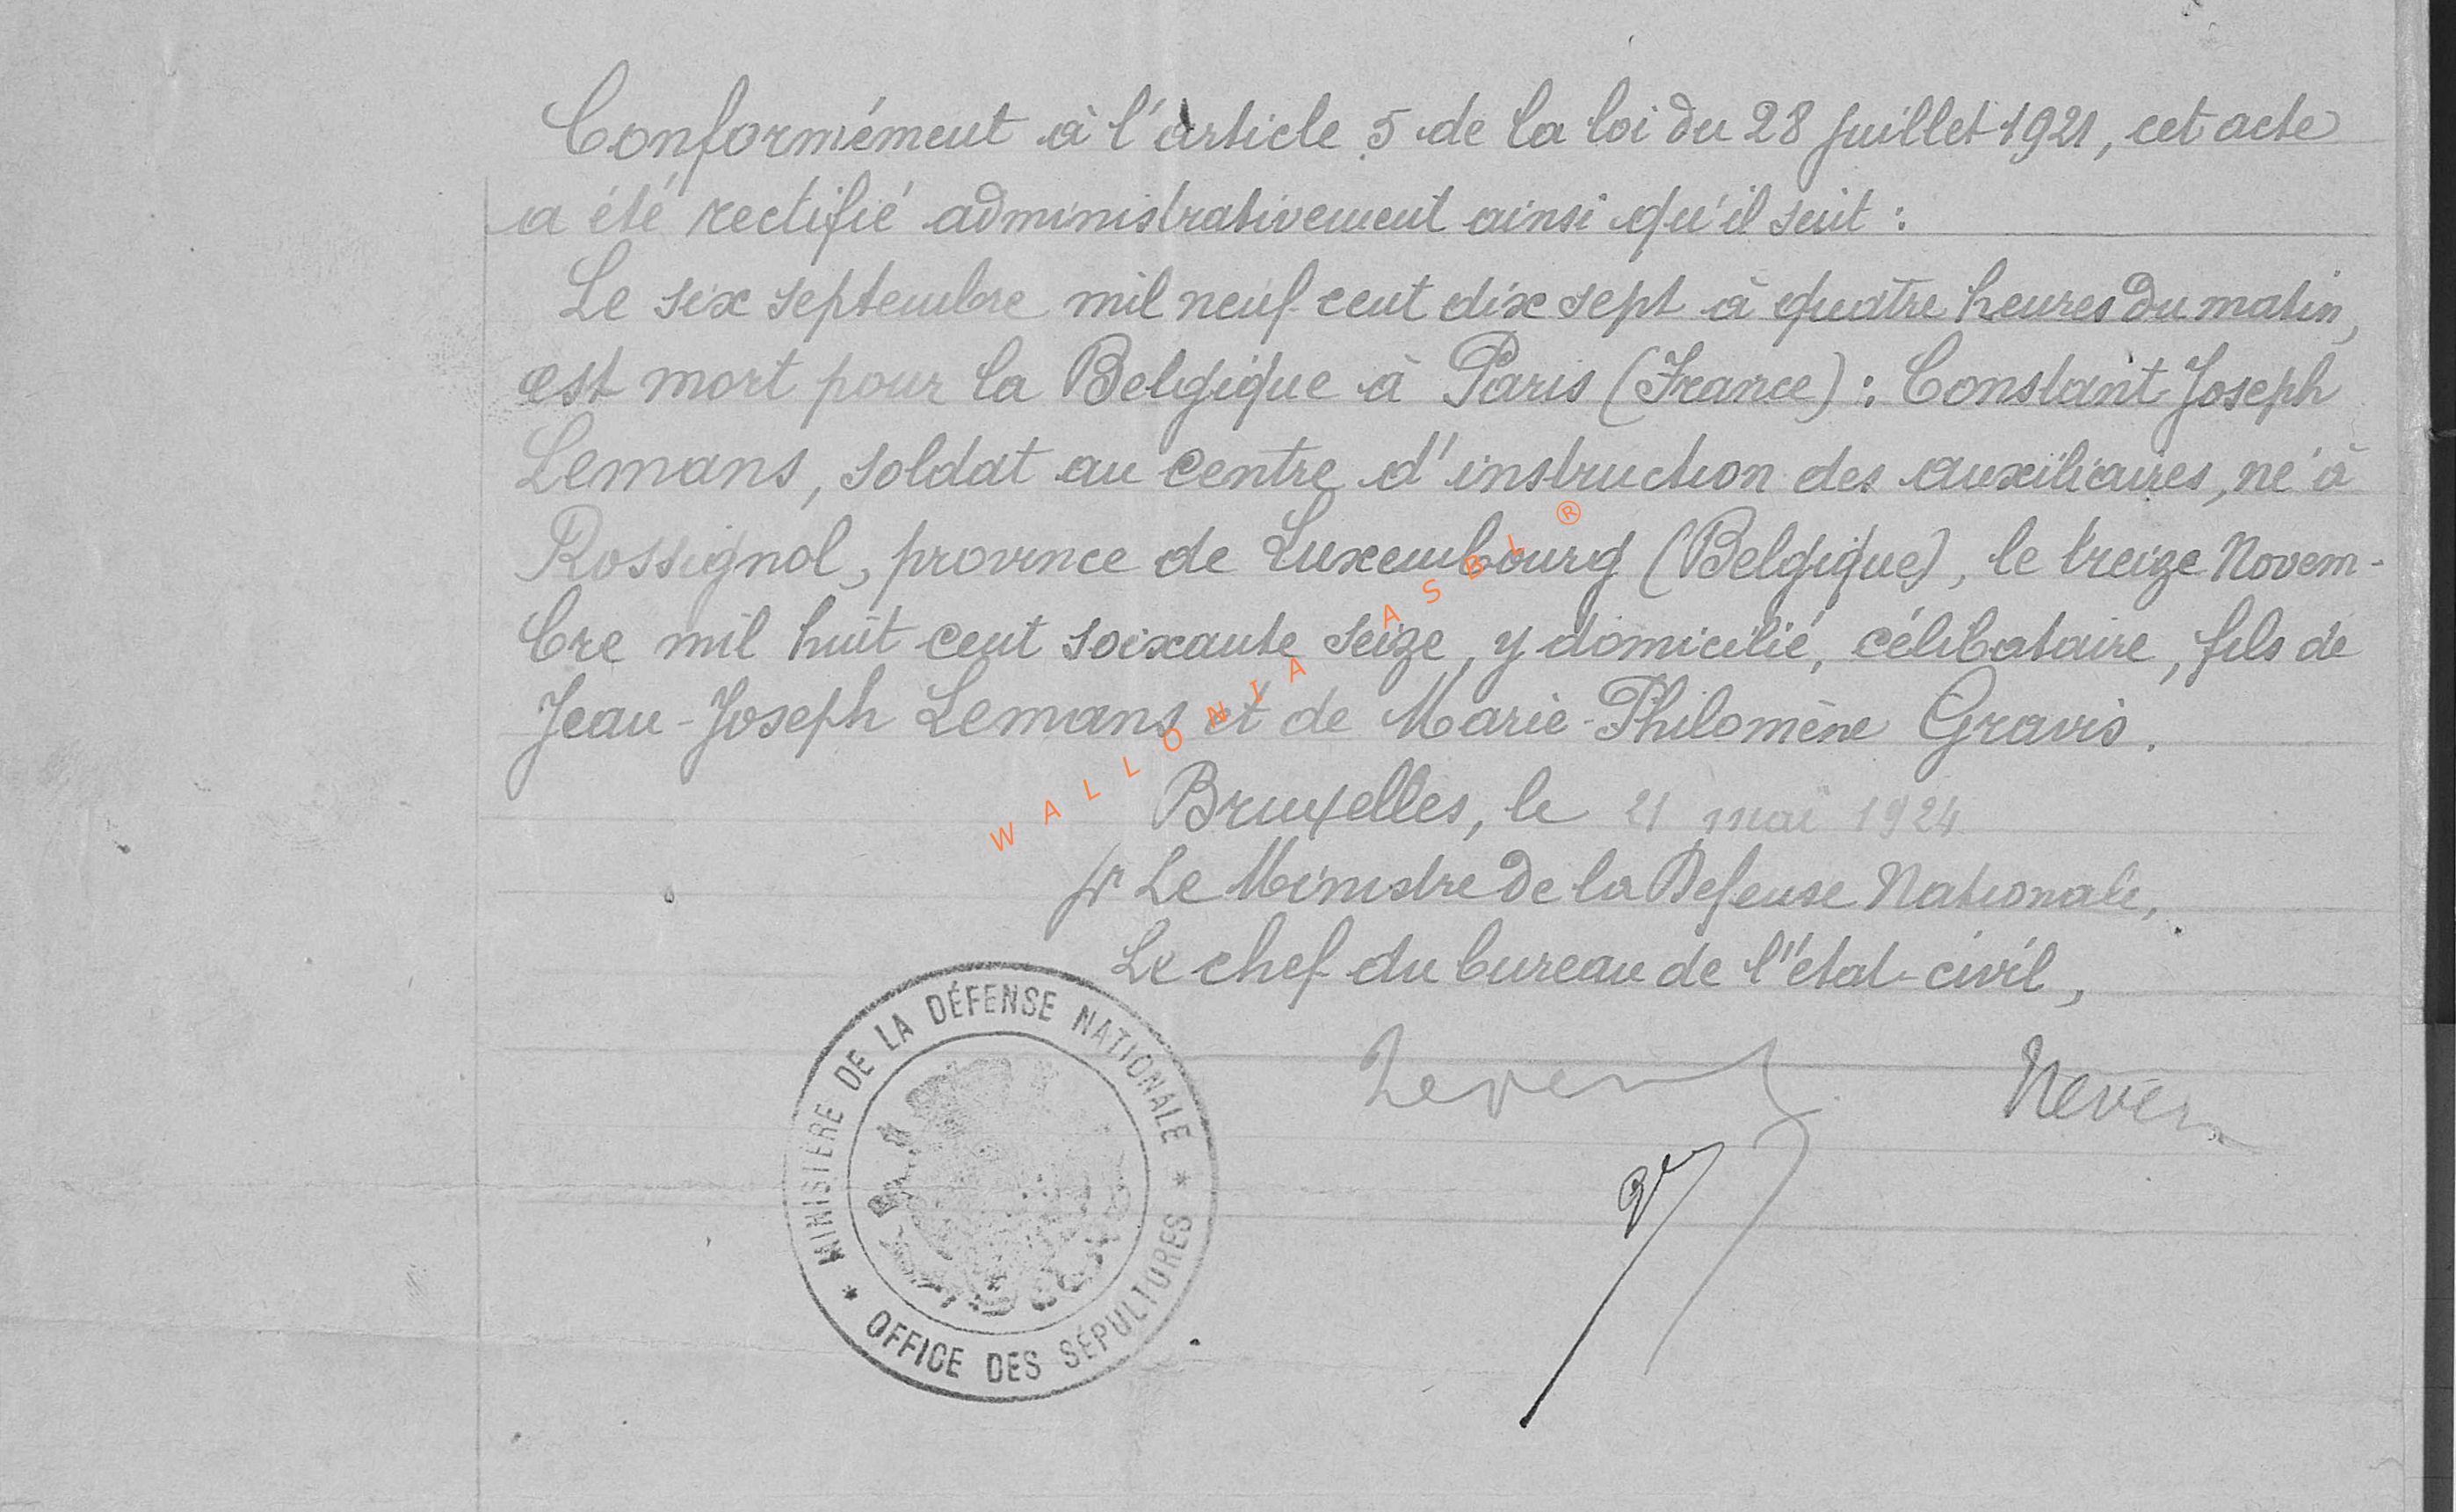 Conformément à l'article 5 de la loi du 28 Juillet 1921, cet acte
a été rectifié administrativement ainsi qu'il suit :
Le six septembre mil neuf cent dix sept à quatre heures du matin,
est mort pour la Belgique à Paris (France) : Constant Joseph
Lemans, soldat au centre d'instruction des auxiliaires, né à
Rossignol, province de Luxembourg (Belgique), le treize Novem-
bre mil huit cent soixante seize, y domicilié, célibataire, fils de
Jean-Joseph Lemans et de Marie-Philomène Gravis.
WALLONIA ASBL ®
Bruxelles, le 21 mai 1924
pr Le Ministre de la Défense Nationale,
Le chef du bureau de l'état-civil,
MINISTÈRE DE LA DÉFENSE NATIONALE
* OFFICE DES SÉPULTURES *
Neven